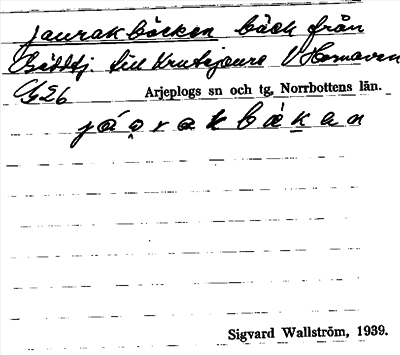 Jaurakbäcken bäck från
till Krutsjaure V Hornavan
G26
Arjeplogs sn och tg, Norrbottens län.
Sigvard Wallström, 1939.